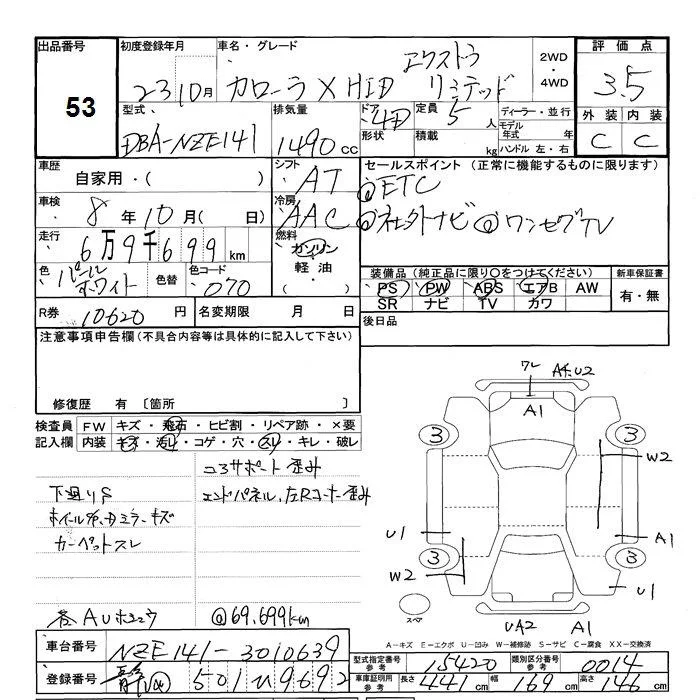 出品番号
53
初度登録年月
23 10月
車名・グレード
カローラ X HID エクストラ
リミテッド
2WD
・
4WD
評価点
3.5
型式
DBA-NZE141
排気量
1490cc
ドア 4D
形状
定員 5人
積載 kg
ディーラー・並行
モデル
年式 年
ハンドル 左・右
外装 内装
C C
車歴
自家用・( )
シフト
AT
車検
8年10月( 日)
冷房
AAC
走行
6万9千699km
燃料
ガソリン
・
軽油・
( )
色
パール
ホワイト
色替
色コード
070
R券 10620円
名変期限 月 日
セールスポイント (正常に機能するものに限ります)
@ETC
@社外ナビ @ワンセグTV
装備品 (純正品に限り○をつけてください)
PS PW ABS エアB AW
SR ナビ TV カワ
新車保証書
有・無
後日品
注意事項申告欄(不具合内容等は具体的に記入して下さい)
修復歴 有 〔箇所
検査員
記入欄
FW キズ・飛石・ヒビ割・リペア跡・×要
内装 キズ・汚れ・コゲ・穴・スレ・キレ・破レ
コアサポート歪み
下廻りS
エンドパネル、左Rコーナー歪み
カーペットスレ
@69.699km
ワレ A4.U2
A1
3 3
W2
U1
A1
3 3
W2
U1
スペア
UA2 A1
A-キズ E-エクボ U-凹み W-補修跡 S-サビ C-腐食 XX-交換済
車台番号 NZE141-3010639
登録番号 501 9692
型式指定番号
参考
15420
類別区分番号
参考
0014
車庫証明用
参考
長さ 441cm
幅 169cm
高さ 146cm